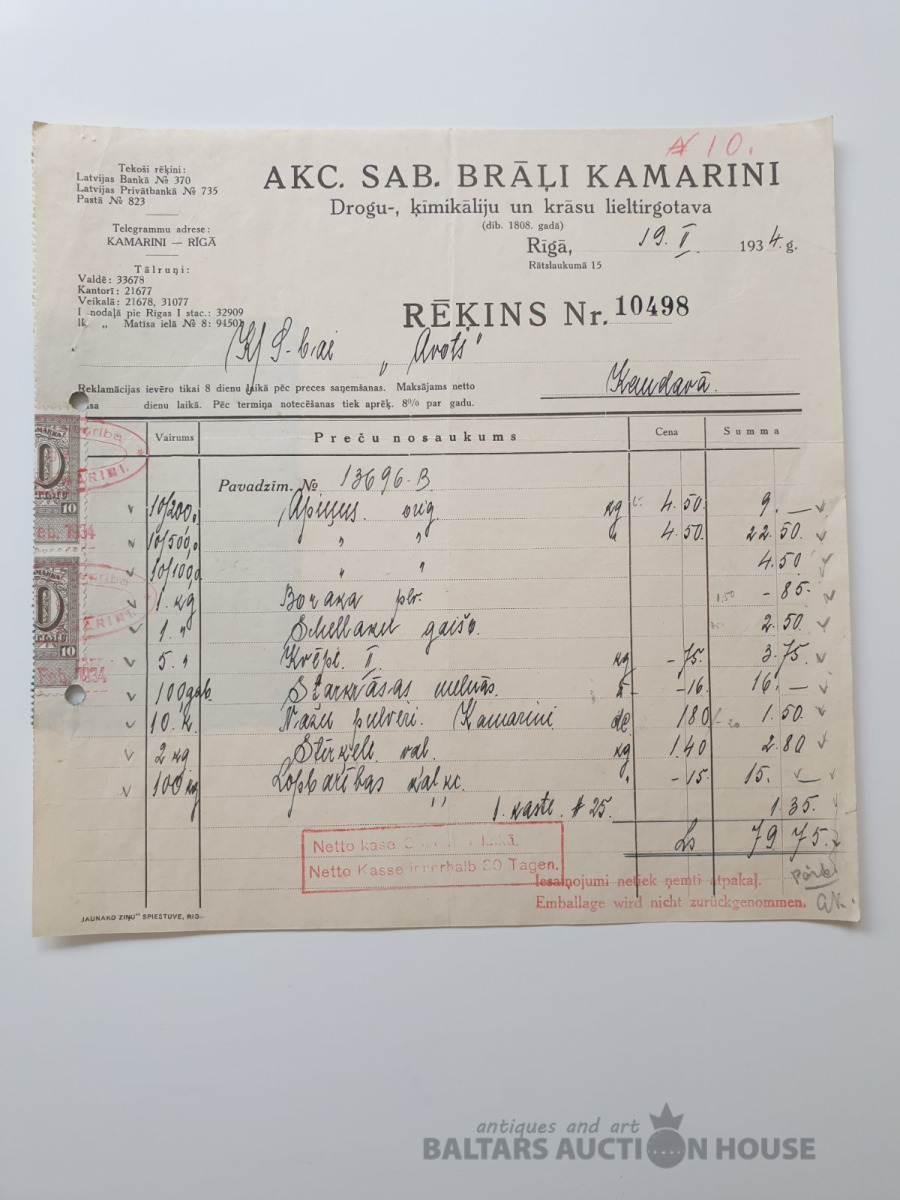 N 10.
Tekoši rēķini:
Latvijas Bankā № 370
Latvijas Privātbankā № 735
Pastā № 823
Telegrammu adrese:
KAMARINI — RĪGĀ
Tālruņi:
Valdē: 33678
Kantorī: 21677
Veikalā: 21678, 31077
I nodaļā pie Rīgas I stac.: 32909
II „ Matīsa ielā № 8: 94502
AKC. SAB. BRĀĻI KAMARINI
Drogu-, ķīmikāliju un krāsu lieltirgotava
(dib. 1808. gadā)
Rīgā, 19. II. 1934. g.
Rātslaukumā 15
RĒĶINS Nr. 10498
K/S-bai „Avots"
Kandavā.
Reklamācijas ievēro tikai 8 dienu laikā pēc preces saņemšanas. Maksājams netto
dienu laikā. Pēc termiņa notecēšanas tiek aprēķ. 8% par gadu.
Vairums Preču nosaukums Cena Summa
Pavadzīm. № 13696. B.
10/200 Apiņus orig kg 4.50 9.—
10/500 „ „ „ 4.50 22.50
10/100 „ „ 4.50
1. kg Boraka plv. - 85.
1. „ Schellakel gaišo. 2.50.
5. „ II kg - 75. 3.75.
100 gab. melnās. - 16. 16.—
10. Nažu pulveri. Kamarini 180 1.50.
2 kg kg 1.40 2.80
100 kg Lopbarības kaļķ. „ - 15 15.—
1. kaste # 25. 1.35.
Ls 79 75.
Netto kase
Netto Kasse innerhalb 30 Tagen.
Iesaiņojumi netiek ņemti atpakaļ.
Emballage wird nicht zurückgenommen.
JAUNĀKO ZIŅU" SPIESTUVE, RĪG
10
Feb. 1934
10
Feb. 1934
antiques and art
BALTARS AUCTION HOUSE